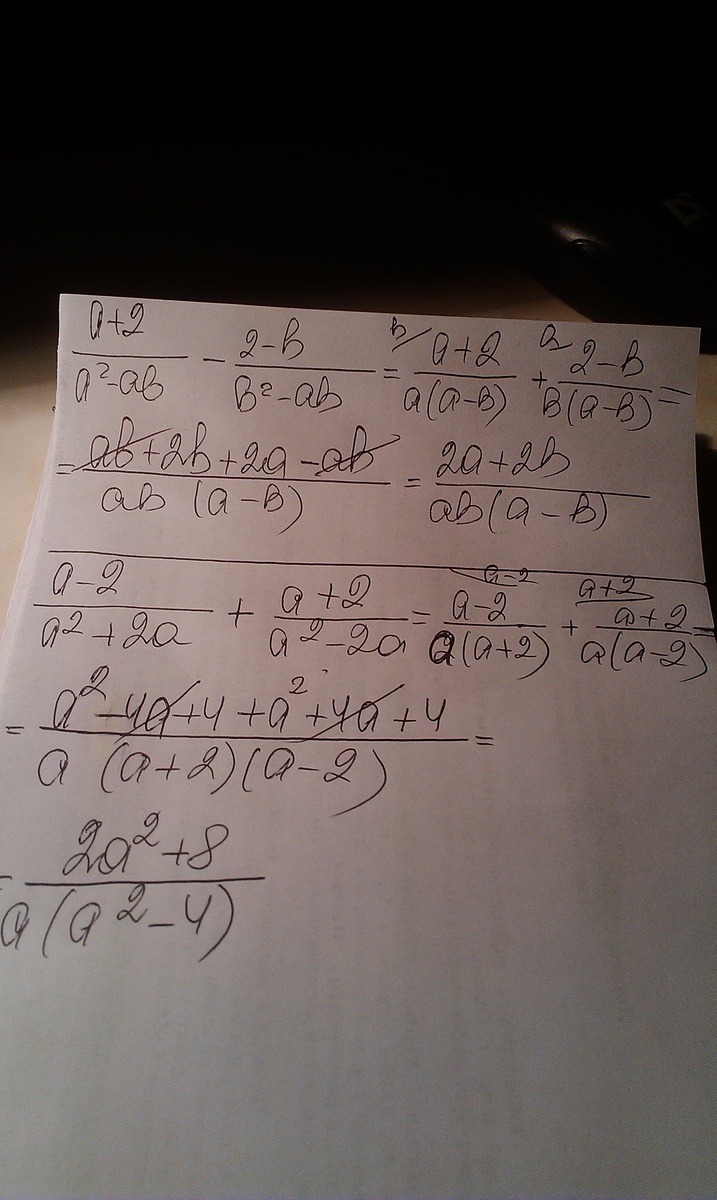 (a+2)/(a²-ab) - (2-b)/(b²-ab) = b/ (a+2)/(a(a-b)) + a/ (2-b)/(b(a-b)) =
= (ab+2b+2a-ab)/(ab (a-b)) = (2a+2b)/(ab(a-b))
(a-2)/(a²+2a) + (a+2)/(a²-2a) = a-2/ (a-2)/(a(a+2)) + a+2/ (a+2)/(a(a-2)) =
= (a²-4a+4+a²+4a+4)/(a (a+2)(a-2)) =
- (2a²+8)/(a(a²-4))